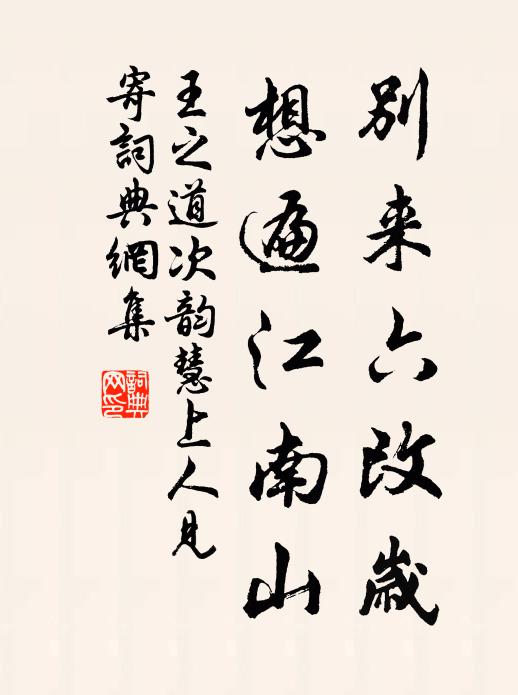 别来六改歲
想遍江南山
王之道次韵慧上人見
寄詞典網集
詞典
网印